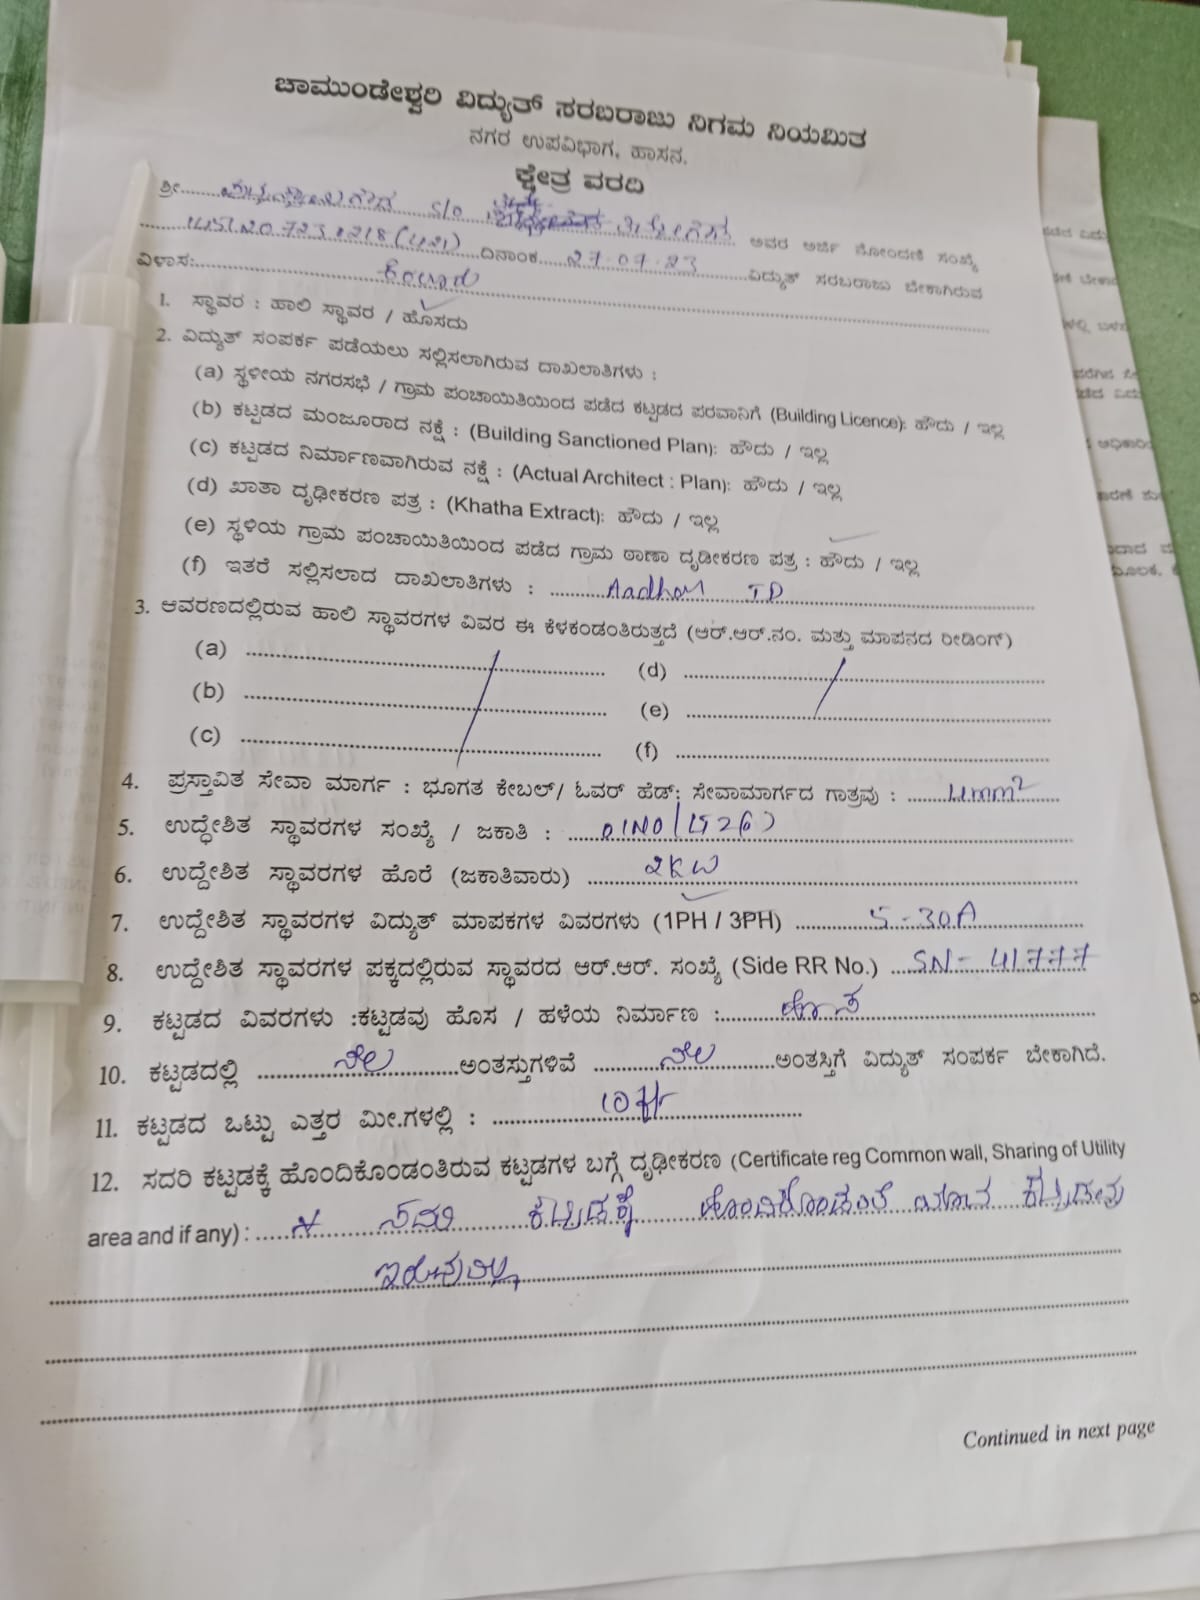 ಚಾಮುಂಡೇಶ್ವರಿ ವಿದ್ಯುತ್ ಸರಬರಾಜು ನಿಗಮ ನಿಯಮಿತ
ನಗರ ಉಪವಿಭಾಗ, ಹಾಸನ.
ಕ್ಷೇತ್ರ ವರದಿ
ಶ್ರೀ........ S/o ........ ಅವರ ಅರ್ಜಿ ನೋಂದಣಿ ಸಂಖ್ಯೆ
........ ದಿನಾಂಕ. 27.07.23 ........ ವಿದ್ಯುತ್ ಸರಬರಾಜು ಬೇಕಾಗಿರುವ
ವಿಳಾಸ:........
1. ಸ್ಥಾವರ : ಹಾಲಿ ಸ್ಥಾವರ / ಹೊಸದು
2. ವಿದ್ಯುತ್ ಸಂಪರ್ಕ ಪಡೆಯಲು ಸಲ್ಲಿಸಲಾಗಿರುವ ದಾಖಲಾತಿಗಳು :
(a) ಸ್ಥಳೀಯ ನಗರಸಭೆ / ಗ್ರಾಮ ಪಂಚಾಯಿತಿಯಿಂದ ಪಡೆದ ಕಟ್ಟಡದ ಪರವಾನಿಗೆ (Building Licence): ಹೌದು / ಇಲ್ಲ
(b) ಕಟ್ಟಡದ ಮಂಜೂರಾದ ನಕ್ಷೆ : (Building Sanctioned Plan): ಹೌದು / ಇಲ್ಲ
(c) ಕಟ್ಟಡದ ನಿರ್ಮಾಣವಾಗಿರುವ ನಕ್ಷೆ : (Actual Architect : Plan): ಹೌದು / ಇಲ್ಲ
(d) ಖಾತಾ ದೃಢೀಕರಣ ಪತ್ರ : (Khatha Extract): ಹೌದು / ಇಲ್ಲ
(e) ಸ್ಥಳಿಯ ಗ್ರಾಮ ಪಂಚಾಯಿತಿಯಿಂದ ಪಡೆದ ಗ್ರಾಮ ಠಾಣಾ ದೃಢೀಕರಣ ಪತ್ರ : ಹೌದು / ಇಲ್ಲ
(f) ಇತರೆ ಸಲ್ಲಿಸಲಾದ ದಾಖಲಾತಿಗಳು : ........Aadhar ID........
3. ಆವರಣದಲ್ಲಿರುವ ಹಾಲಿ ಸ್ಥಾವರಗಳ ವಿವರ ಈ ಕೆಳಕಂಡಂತಿರುತ್ತದೆ (ಆರ್.ಆರ್.ನಂ. ಮತ್ತು ಮಾಪನದ ರೀಡಿಂಗ್)
(a) ........ (d) ........
(b) ........ (e) ........
(c) ........ (f) ........
4. ಪ್ರಸ್ತಾವಿತ ಸೇವಾ ಮಾರ್ಗ : ಭೂಗತ ಕೇಬಲ್/ ಓವರ್ ಹೆಡ್: ಸೇವಾಮಾರ್ಗದ ಗಾತ್ರವು : ........4mm²........
5. ಉದ್ಧೇಶಿತ ಸ್ಥಾವರಗಳ ಸಂಖ್ಯೆ / ಜಕಾತಿ : ........
6. ಉದ್ದೇಶಿತ ಸ್ಥಾವರಗಳ ಹೊರೆ (ಜಕಾತಿವಾರು) ........2KW........
7. ಉದ್ದೇಶಿತ ಸ್ಥಾವರಗಳ ವಿದ್ಯುತ್ ಮಾಪಕಗಳ ವಿವರಗಳು (1PH / 3PH) ........5-30A........
8. ಉದ್ದೇಶಿತ ಸ್ಥಾವರಗಳ ಪಕ್ಕದಲ್ಲಿರುವ ಸ್ಥಾವರದ ಆರ್.ಆರ್. ಸಂಖ್ಯೆ (Side RR No.) ....SN-41777
9. ಕಟ್ಟಡದ ವಿವರಗಳು :ಕಟ್ಟಡವು ಹೊಸ / ಹಳೆಯ ನಿರ್ಮಾಣ :........ಹೊಸ........
10. ಕಟ್ಟಡದಲ್ಲಿ ........ನೆಲ........ಅಂತಸ್ತುಗಳಿವೆ ........ನೆಲ........ಅಂತಸ್ತಿಗೆ ವಿದ್ಯುತ್ ಸಂಪರ್ಕ ಬೇಕಾಗಿದೆ.
11. ಕಟ್ಟಡದ ಒಟ್ಟು ಎತ್ತರ ಮೀ.ಗಳಲ್ಲಿ : ........10ft........
12. ಸದರಿ ಕಟ್ಟಡಕ್ಕೆ ಹೊಂದಿಕೊಂಡಂತಿರುವ ಕಟ್ಟಡಗಳ ಬಗ್ಗೆ ದೃಢೀಕರಣ (Certificate reg Common wall, Sharing of Utility
area and if any) : ........ ಸದರಿ ಕಟ್ಟಡಕ್ಕೆ ಹೊಂದಿಕೊಂಡಂತೆ ಯಾವ ಕಟ್ಟಡವು
ಇರುವುದಿಲ್ಲ
Continued in next page